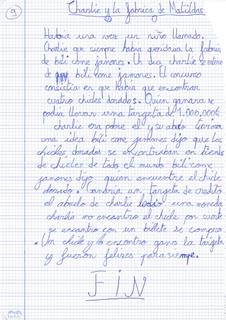 9
Charlie y la fabrica de Matildas
Habia una vez un niño llamado
Charlie que siempre habia querido a la fabrica
de bili come jamones. Un dia, charlie se entero
de bili come jamones. El concurso
consistia en que habia que encontrar
cuatro chicles dorados. Quien ganara se
podia llevar una tarjeta de 1.000.000€
charlie era pobre el y su abuelo
una idea bili come jamones dijo que los
chicles dorados se encontraban en tiendas
de chicles de todo el mundo bili come
jamones dijo quien encuentre el chicle
dorado. Tendria un tarjeta de credito
el abuelo de charlie una moneda
charlie no encontro el chicle por suerte
se encontro con un billete se compro
un chicle y lo encontro gano la tarjeta
y fueron felices para siempre.
FIN